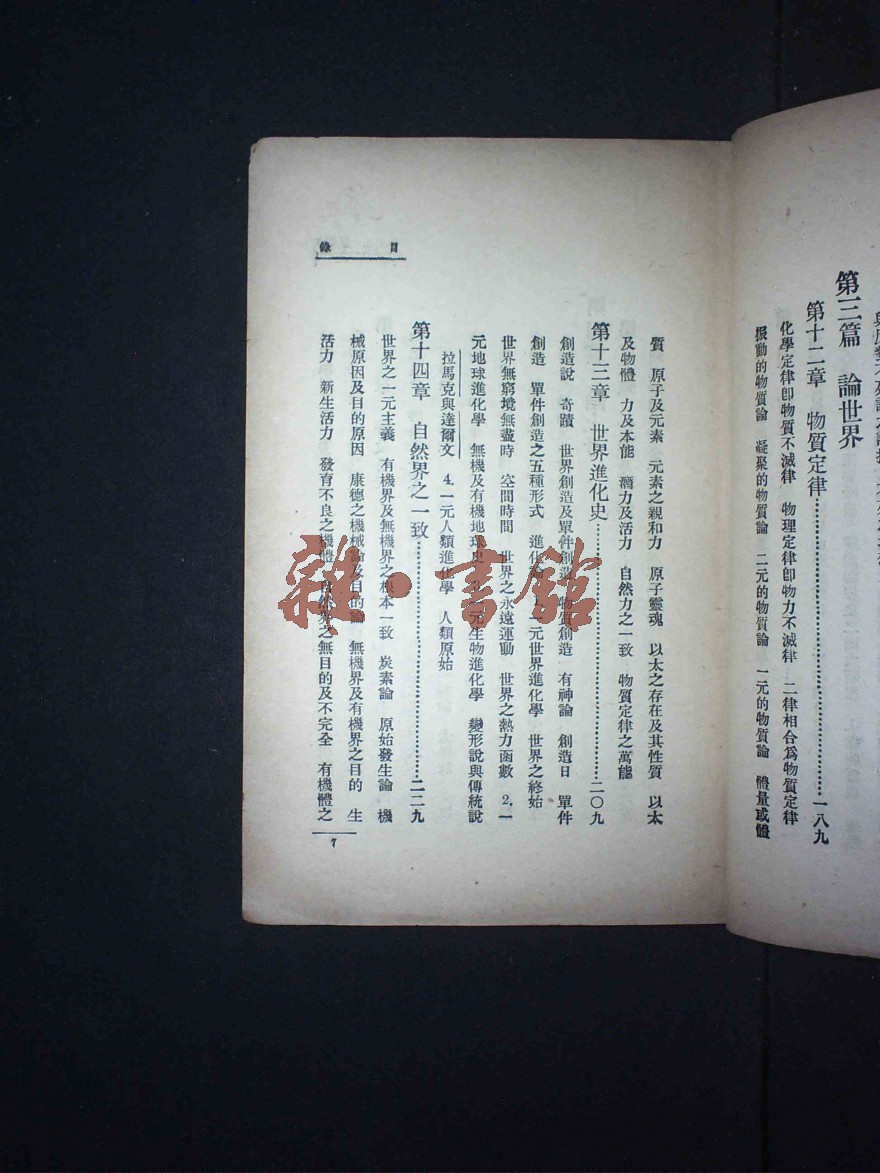 第三篇 論世界
第十二章 物質定律……一八九
化學定律卽物質不滅律 物理定律卽物力不滅律 二律相合爲物質定律
振動的物質論 凝聚的物質論 二元的物質論 一元的物質論 體量或體
目錄
質 原子及元素 元素之親和力 原子靈魂 以太之存在及其性質 以太
及物體 力及本能 潛力及活力 自然力之一致 物質定律之萬能
第十三章 世界進化史……二〇九
創造說 奇蹟 世界創造及單件創造 物質創造 有神論 創造日 單件
創造 單件創造之五種形式 進化論 一元世界進化學 世界之終始
世界無窮境無盡時 空間時間 世界之永遠運動 世界之熱力函數 2.一
元地球進化學 無機及有機地球史 元生物進化學 變形說與傳統說
拉馬克與達爾文 4.一元人類進化學 人類原始
第十四章 自然界之一致……二二九
世界之一元主義 有機界及無機界之根本一致 炭素論 原始發生論 機
械原因及目的原因 康德之機械論及目的論 無機界及有機界之目的 生
活力 新生活力 發育不良之機體 自然界之無目的及不完全 有機體之
7
雜·書館